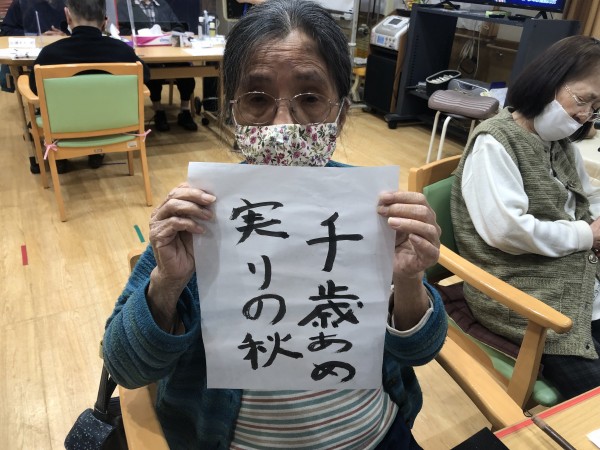 千歳あめ
実りの秋